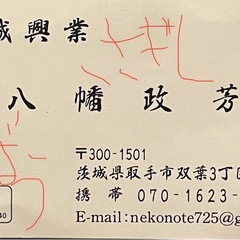 城興業
八幡政芳
〒300-1501
茨城県取手市双葉3丁目
携帯 070-1623-
E-mail:nekonote725@g
40